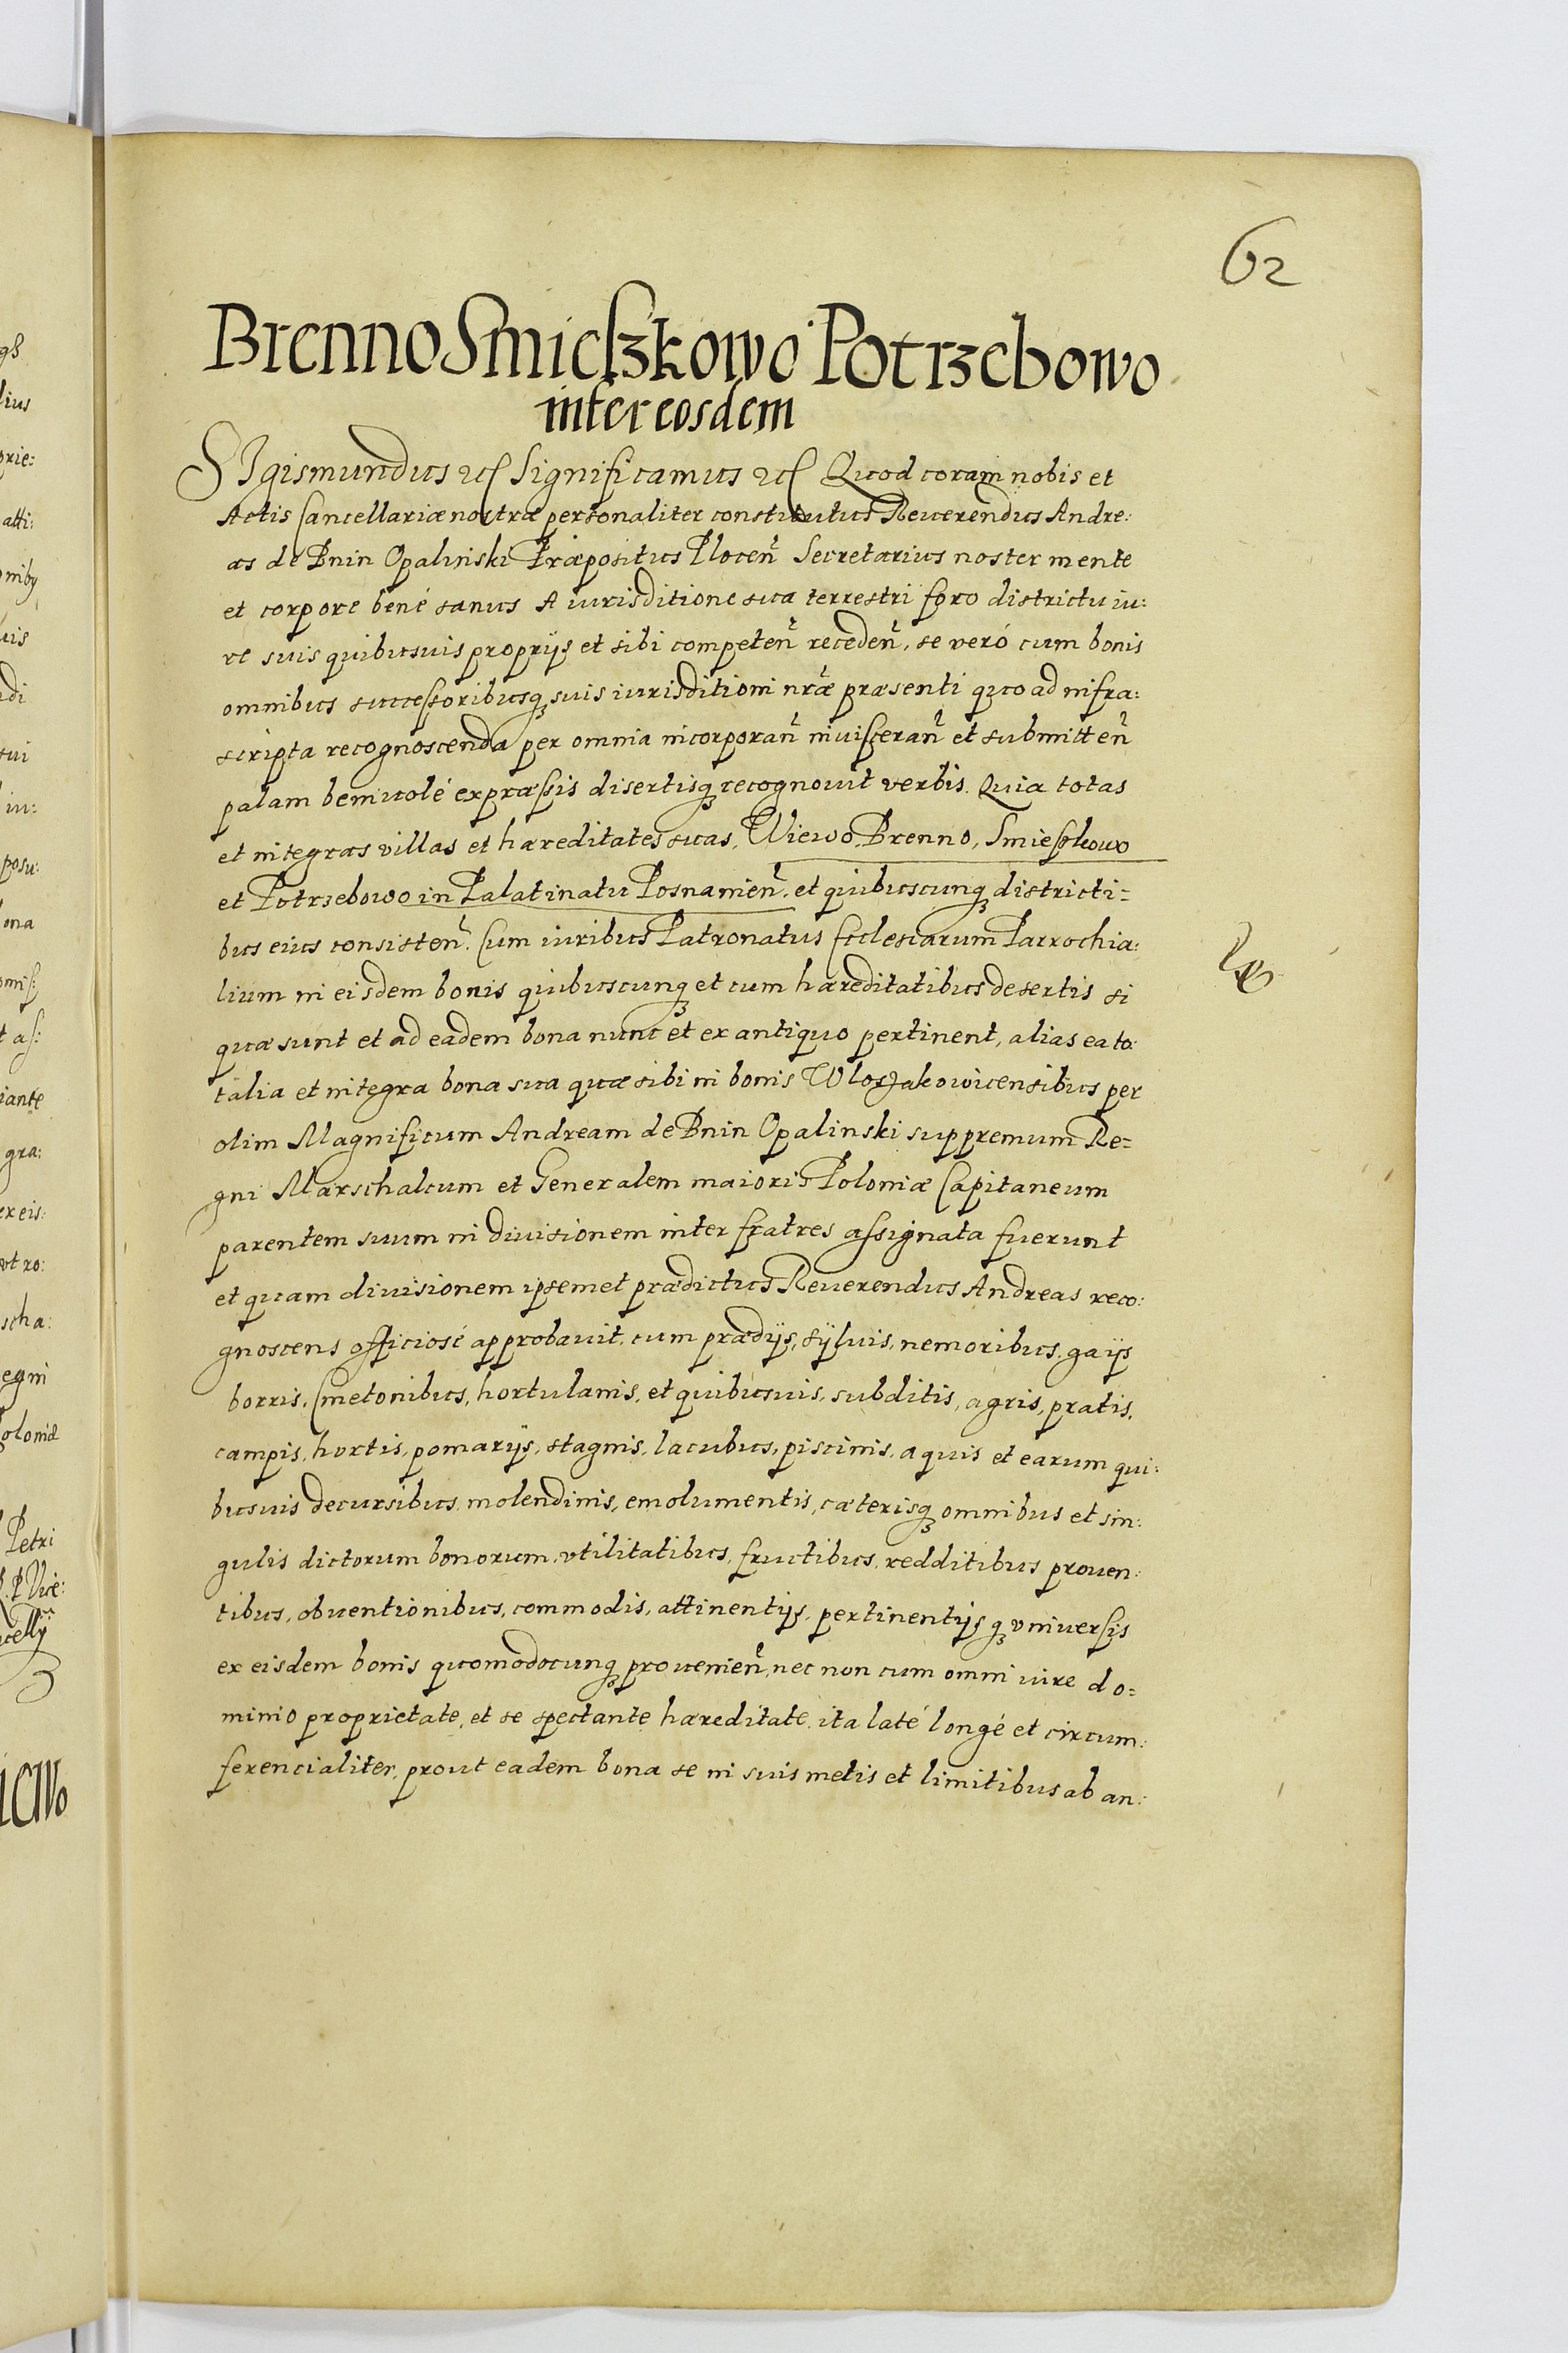 62
Brenno Smieszkowo Potrzebowo
inter eosdem
SIgismundus etc Significamus etc Quod coram nobis et
Actis Cancellariæ nostræ personaliter constitutus Reuerendus Andre:
as de Bnin Opalinski Præpositus Plocen̄ Secretarius noster mente
et corpore bené sanus A iurisditione sua terrestri foro districtu iu:
re suis quibusuis proprijs et sibi competen̄ receden̄, se veró cum bonis
omnibus successoribusq́ suis iurisditioni nr̄æ præsenti quo ad infra:
scripta recognoscenda per omnia incorporan̄ inuisceran̄ et submitten̄
palam beniuolé expræssis disertisq́ recognouit verbis. Quia totas
et integras villas et hæreditates suas, Wiewo, Brenno, Smieszkowo
et Potrzebowo in Palatinatu Posnanien̄. et quibuscunq́ districti=
bus eius consisten̄. Cum iuribus Patronatus Ecclesiarum Parrochia:
lium in eisdem bonis quibuscunq́ et cum hæreditatibus desertis si
quæ sunt et ad eadem bona nunc et ex antiquo pertinent, alias ea to:
talia et integra bona sua quæ sibi in bonis Wloszakowicensibus per
olim Magnificum Andream de Bnin Opalinski suppremum Re=
gni Marschalcum et Generalem maioris Poloniæ Capitaneum
parentem suum in diuisionem inter fratres assignata fuerunt
et quam diuisionem ipsemet prædictus Reuerendus Andreas reco:
gnoscens officiosé approbauit, cum prædijs, syluis, nemoribus, gaijs
borris, Cmetonibus, hortulanis, et quibusuis, subditis, agris, pratis,
campis, hortis, pomarijs, stagnis, lacubus, piscinis, aquis et earum qui:
busuis decursibus, molendinis, emolumentis, cæterisq́ omnibus et sin:
gulis dictorum bonorum, vtilitatibus, fructibus, redditibus prouen:
tibus, obuentionibus, commodis, attinentijs, pertinentijsq́ vniuersis
ex eisdem bonis quomodocunq́ prouenien̄, nec non cum omni iure do=
minio proprietate, et se spectante hæreditate, ita laté longé et circum:
ferencialiter, prout eadem bona se in suis metis et limitibus ab an: